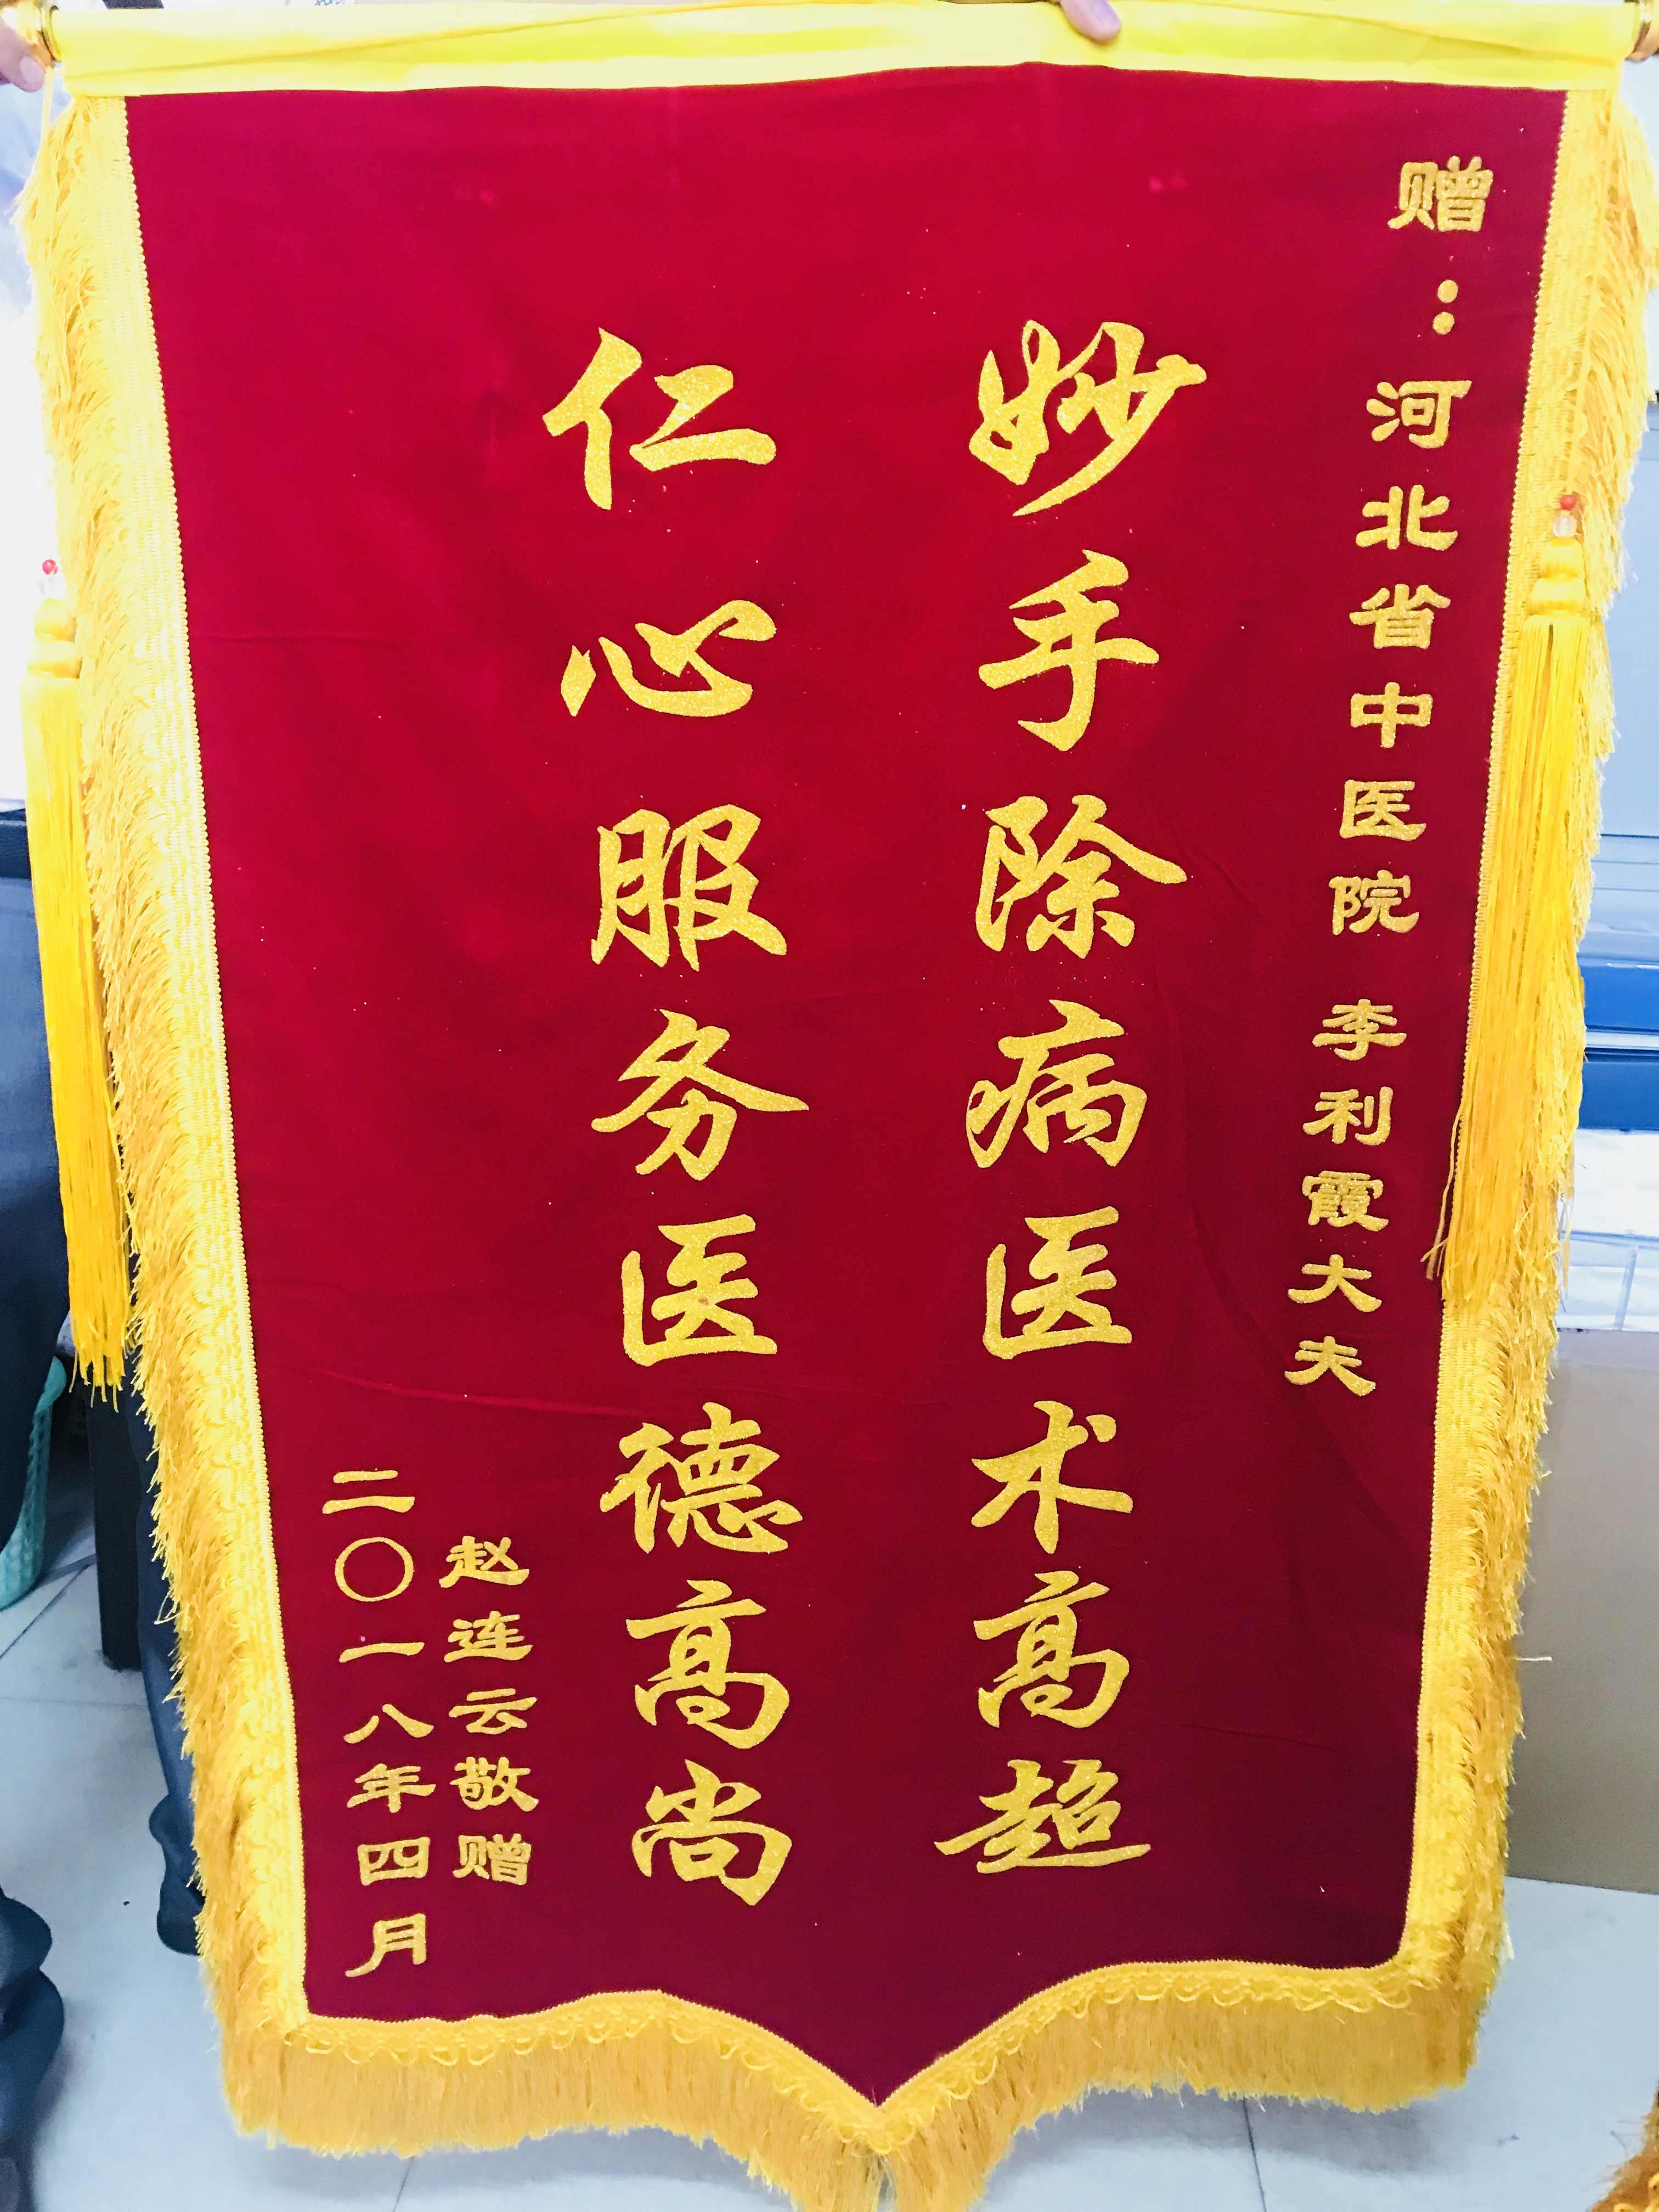 赠：河北省中医院 李利霞大夫
妙手除病医术高超
仁心服务医德高尚
赵连云敬赠
二〇一八年四月